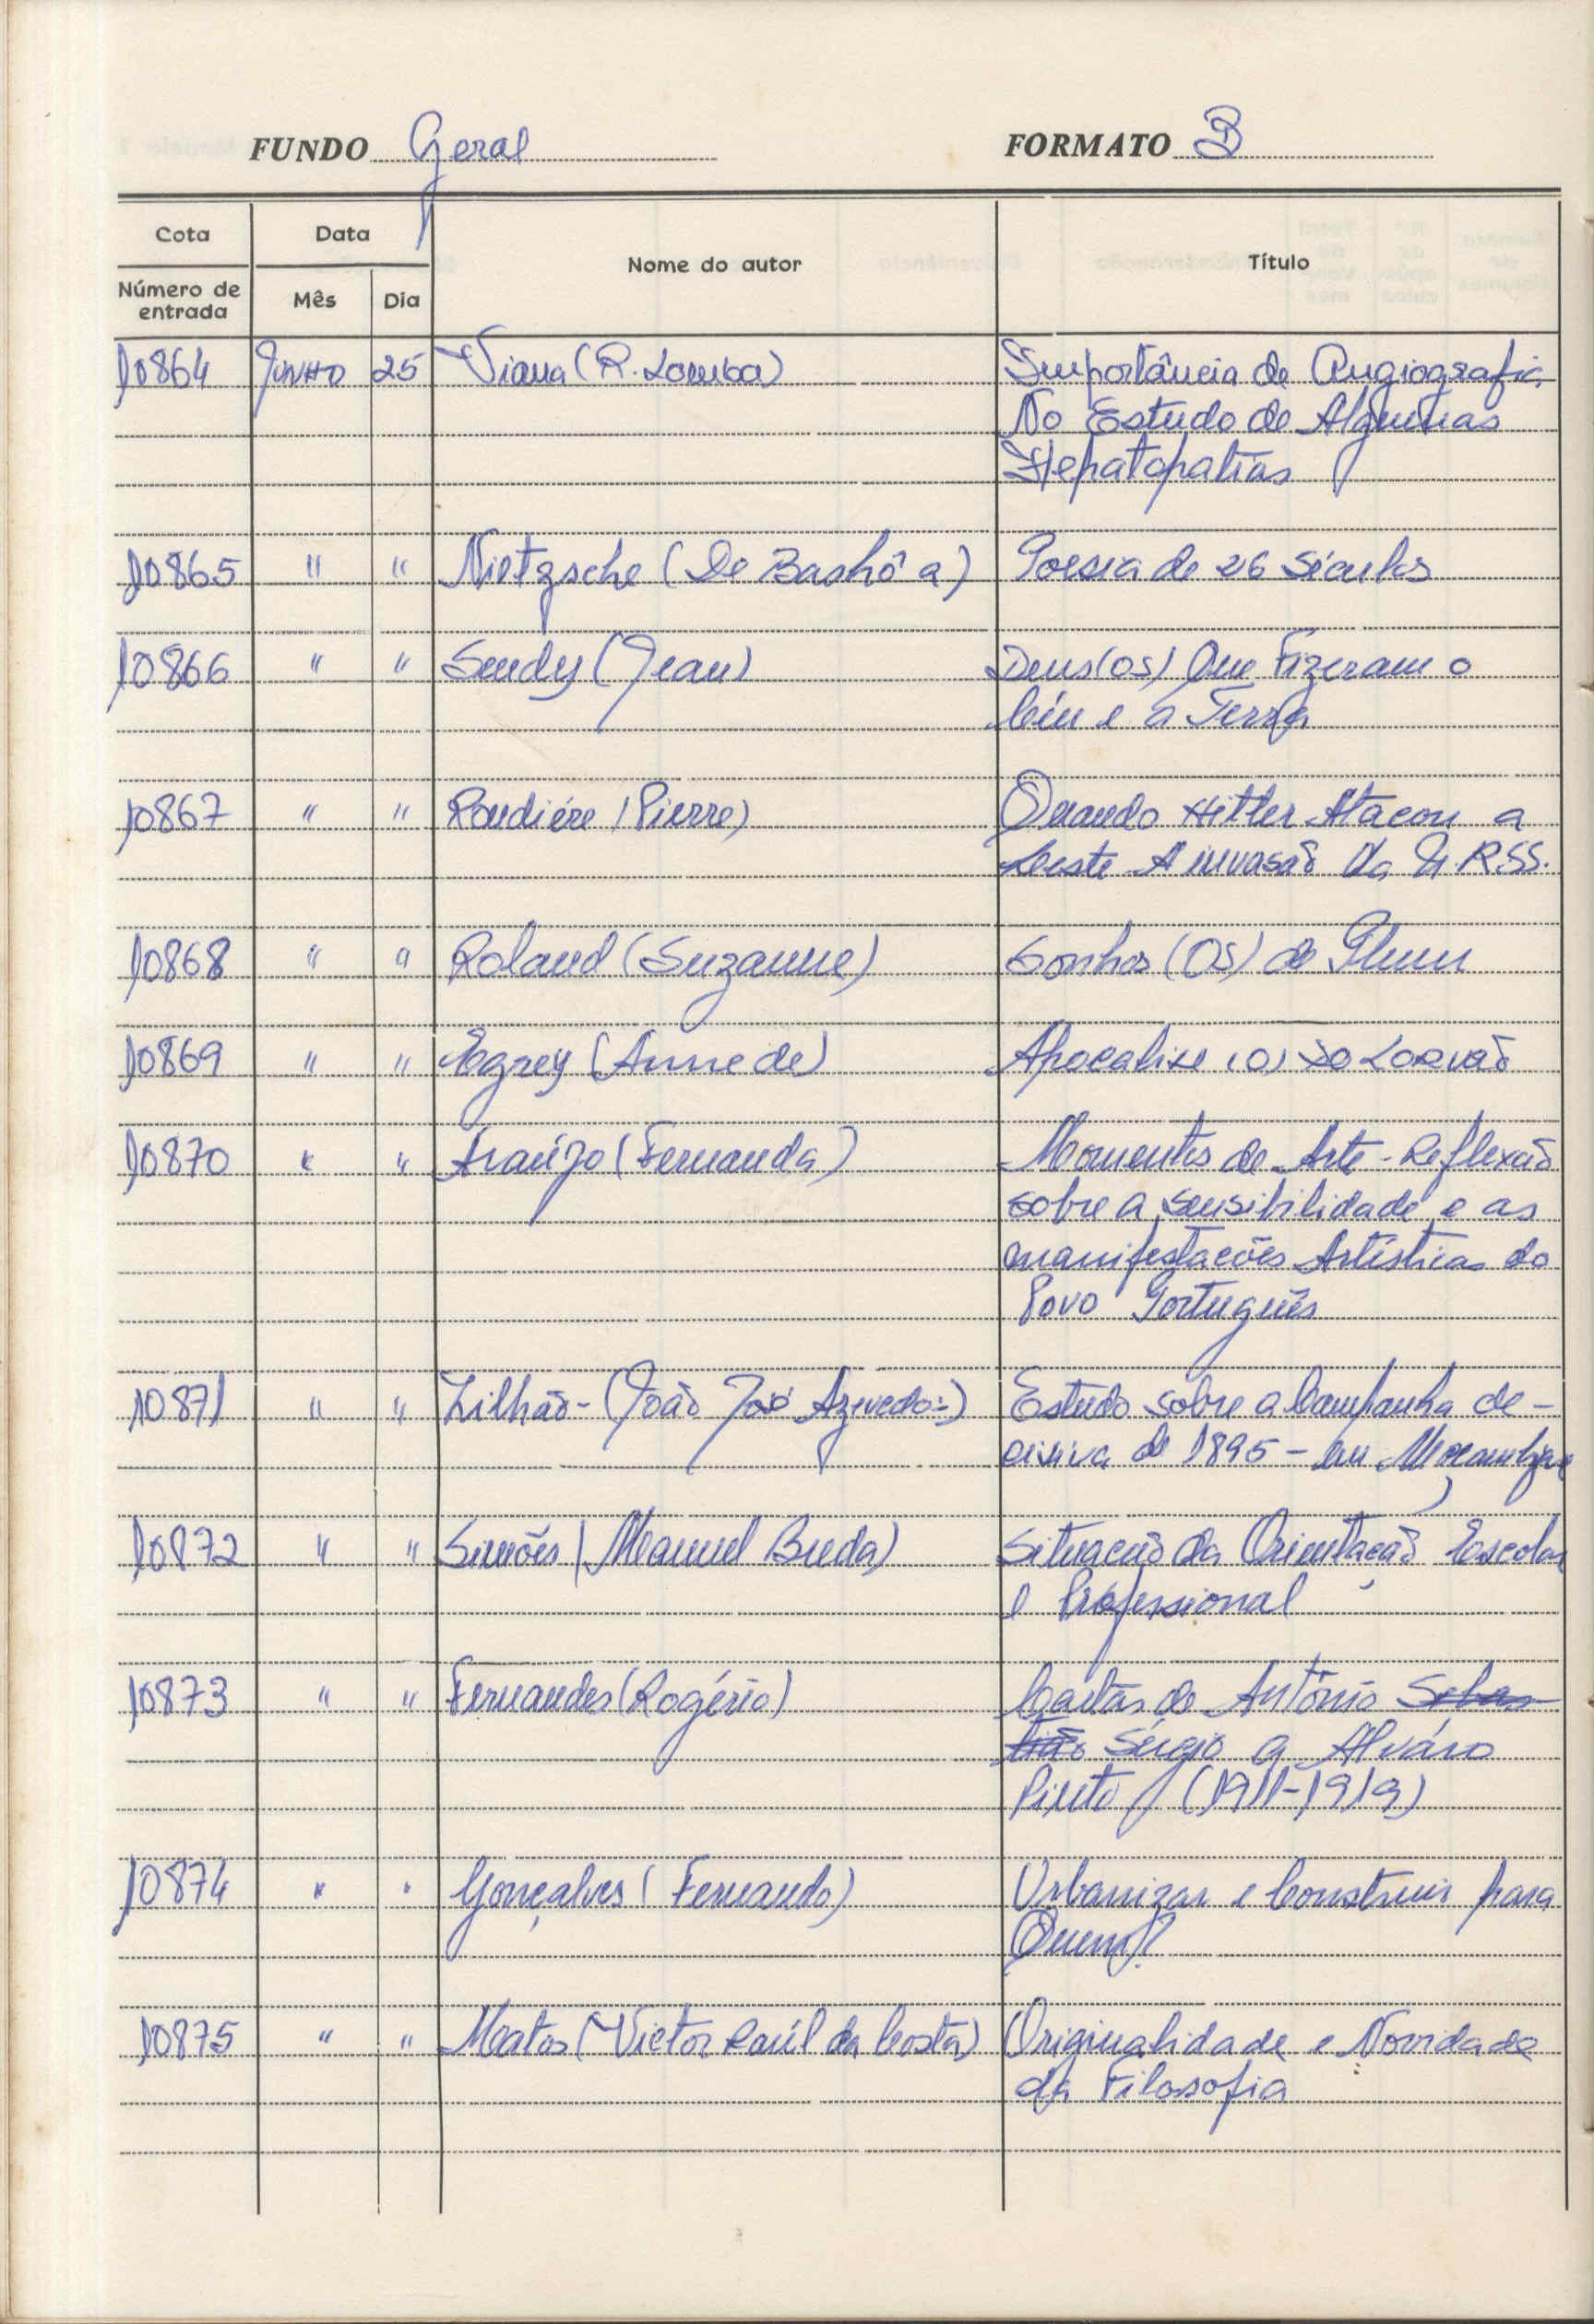 FUNDO Geral FORMATO B
Cota Data Nome do autor Título
Número de entrada Mês Dia
10864 Junho 25 Viana (R. Lomba) Importância de Angiografia
No Estudo de Algumas
Hepatopatias
10865 " " Nietzsche (De Bashô a) Poesia de 26 Séculos
10866 " " Sendy (Jean) Deus(os) Que Fizeram o
Céu e a Terra
10867 " " Rondière (Pierre) Quando Hitler Atacou a
Leste A invasão da U.RSS.
10868 " " Roland (Suzanne) Sonhos (OS) de
10869 " " Egrey (Anne de) Apocalixe (o) Do Lorvão
10870 " " Araújo (Fernanda) Momentos de Arte - Reflexão
sobre a sensibilidade e as
manifestacões Artísticas do
Povo Português
10871 " " Zilhão - (João José Azevedo:) Estudo sobre a Campanha de-
cisiva de 1895 - em Moçambique
10872 " " Simões (Manuel Breda) Situação da Orientação Escolar
e Professional
10873 " " Fernandes (Rogério) Cartas de António Sebas
tião Sérgio a Alváro
Pinto (1911-1919)
10874 " " Gonçalves (Fernando) Urbanizar e Construir para
Quem?
10875 " " Matos (Victor Raúl da Costa) Originalidade e Novidade
da Filosofia